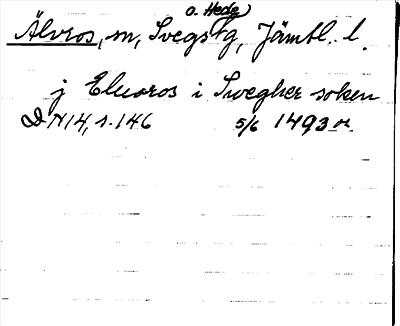 o. Hede
Älvros, sn, Svegs tg, Jämtl. l.
j Eluaros i Swegher soken
DN 14, s. 146 5/6 1493 or.